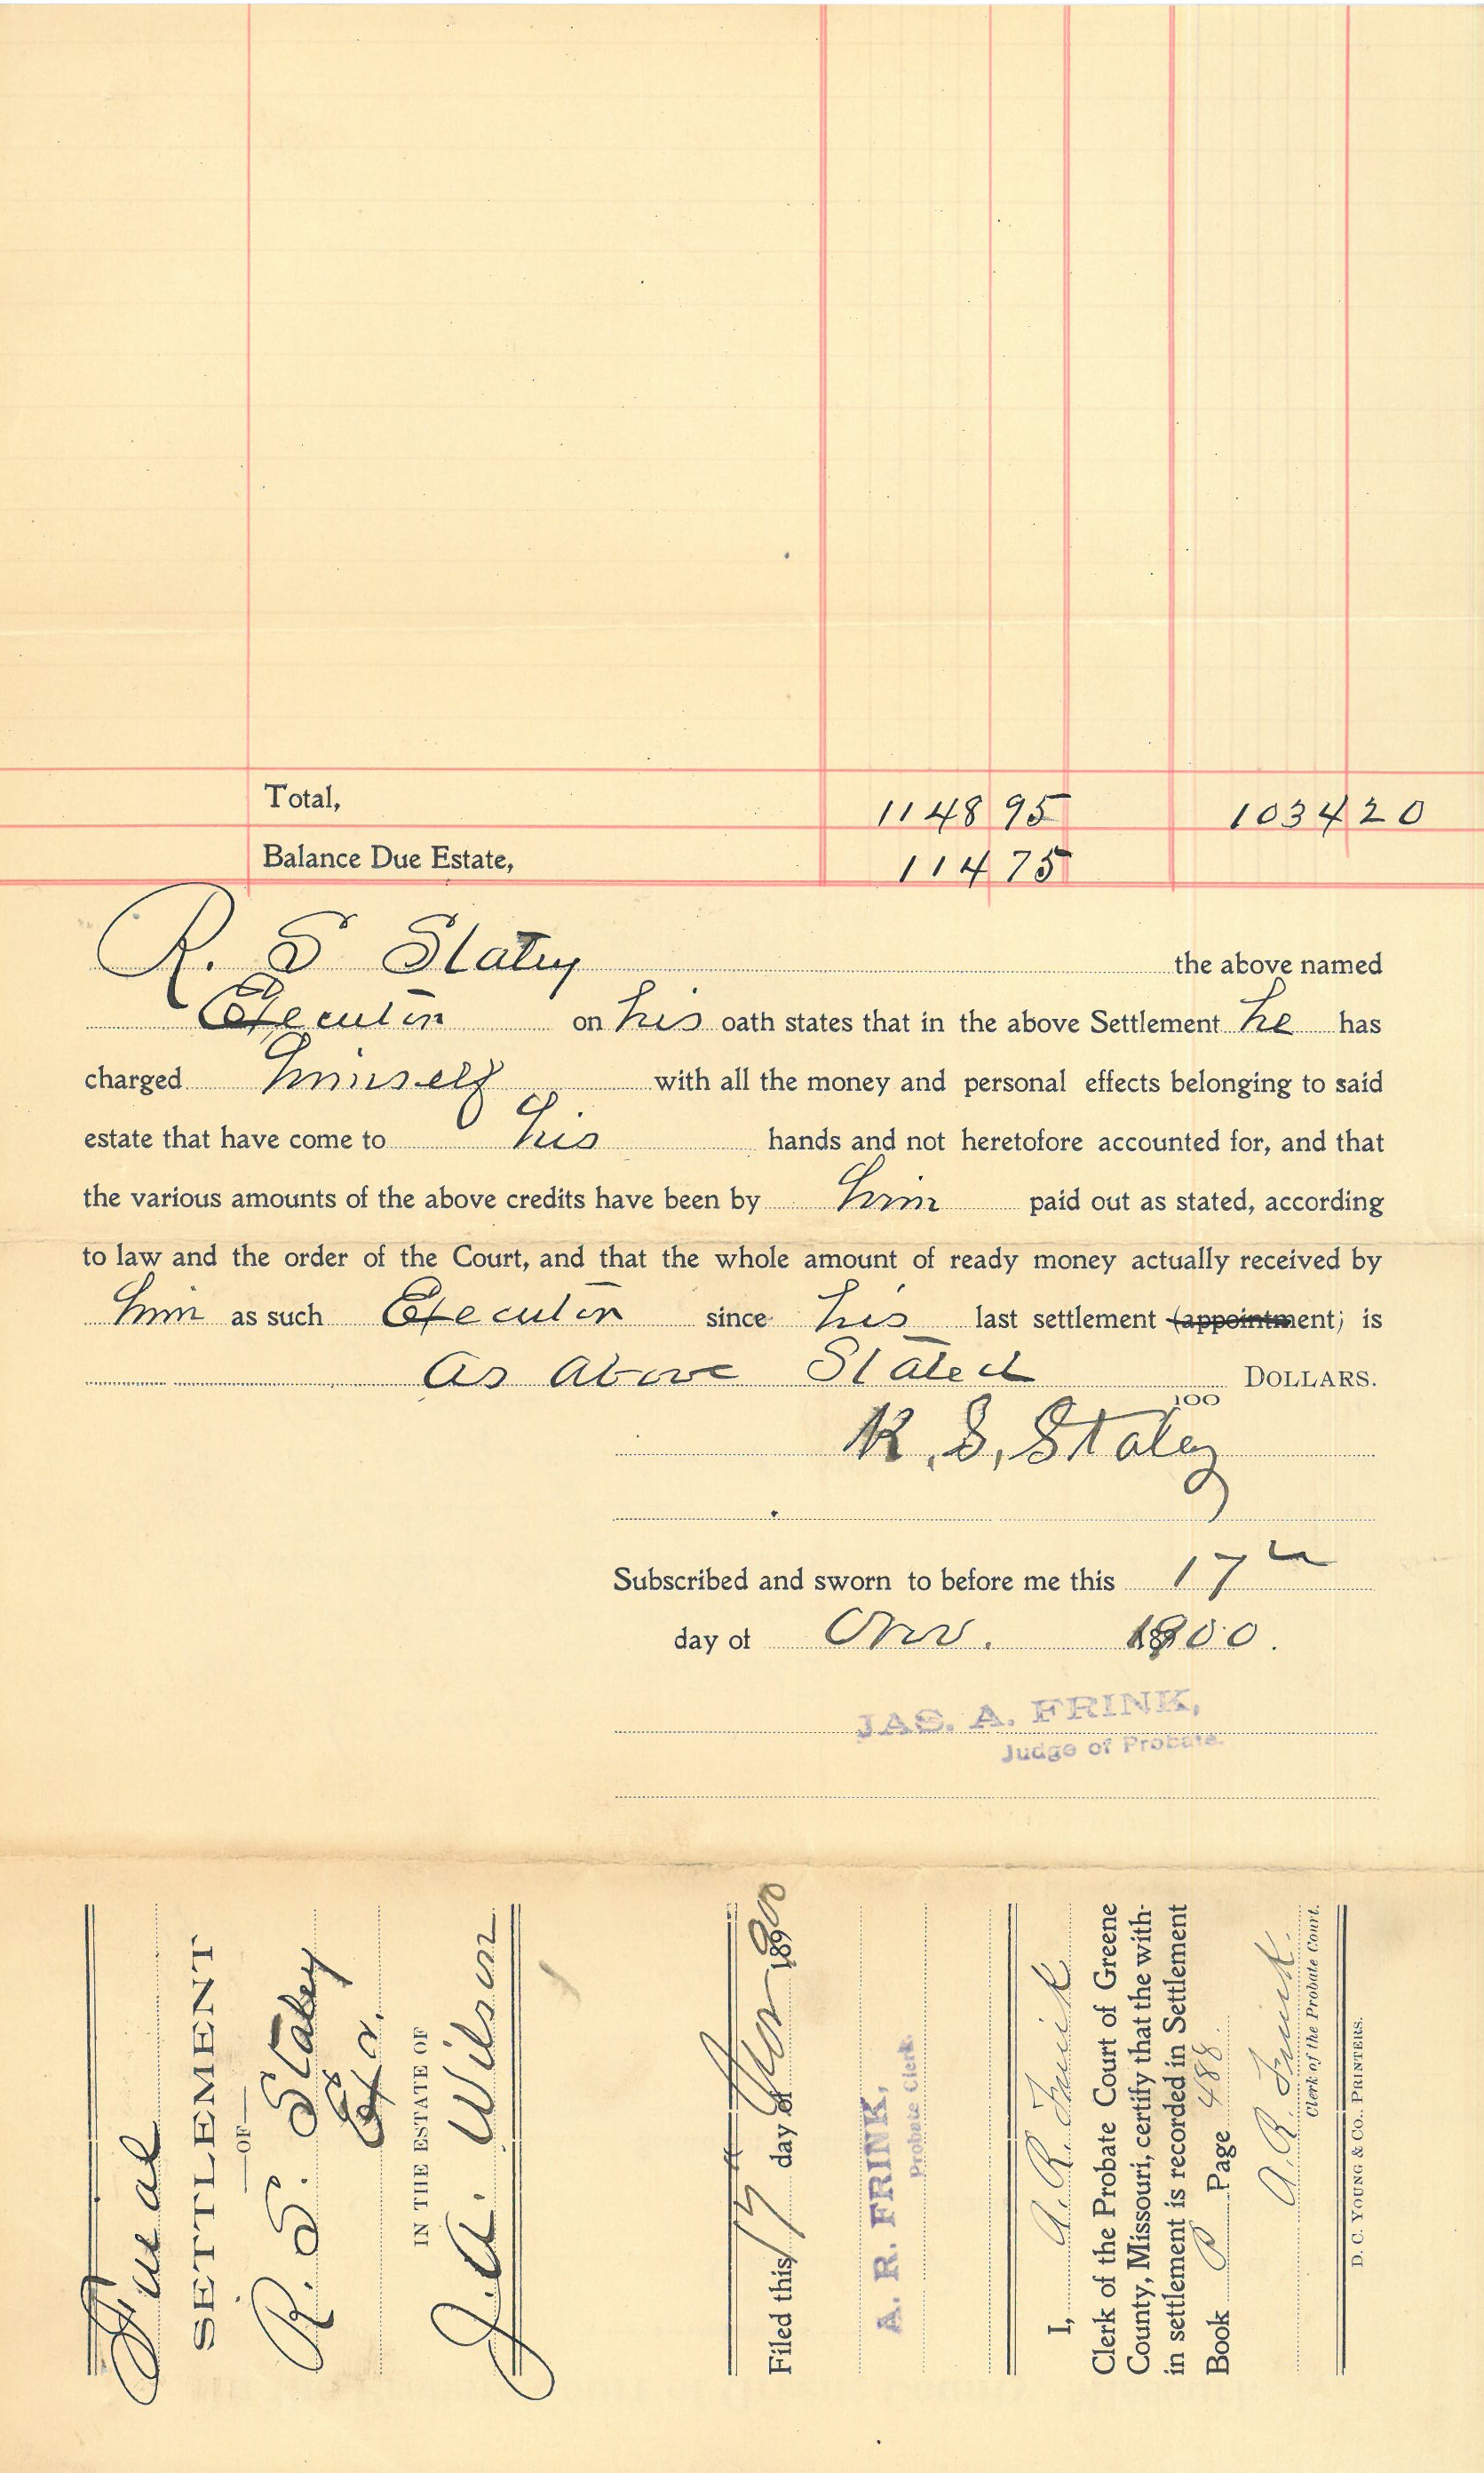 Total, 1148 95 1034 20
Balance Due Estate, 114 75
R. S Staley the above named
Executor on his oath states that in the above Settlement he has
charged himself with all the money and personal effects belonging to said
estate that have come to his hands and not heretofore accounted for, and that
the various amounts of the above credits have been by him paid out as stated, according
to law and the order of the Court, and that the whole amount of ready money actually received by
him as such Executor since his last settlement (appointment) is
as above Stated DOLLARS.
100
R. S. Staley
Subscribed and sworn to before me this 17th
day of Nov. 1900.
JAS. A. FRINK,
Judge of Probate.
Final
SETTLEMENT
—OF—
R. S. Staley
Exr.
IN THE ESTATE OF
J. A. Wilson
Filed this 17th day of Nov 1900
A. R. FRINK,
Probate Clerk.
I, A. R. Frink
Clerk of the Probate Court of Greene
County, Missouri, certify that the with-
in settlement is recorded in Settlement
Book P Page 488.
A. R. Frink.
Clerk of the Probate Court.
D. C. YOUNG & CO., PRINTERS.